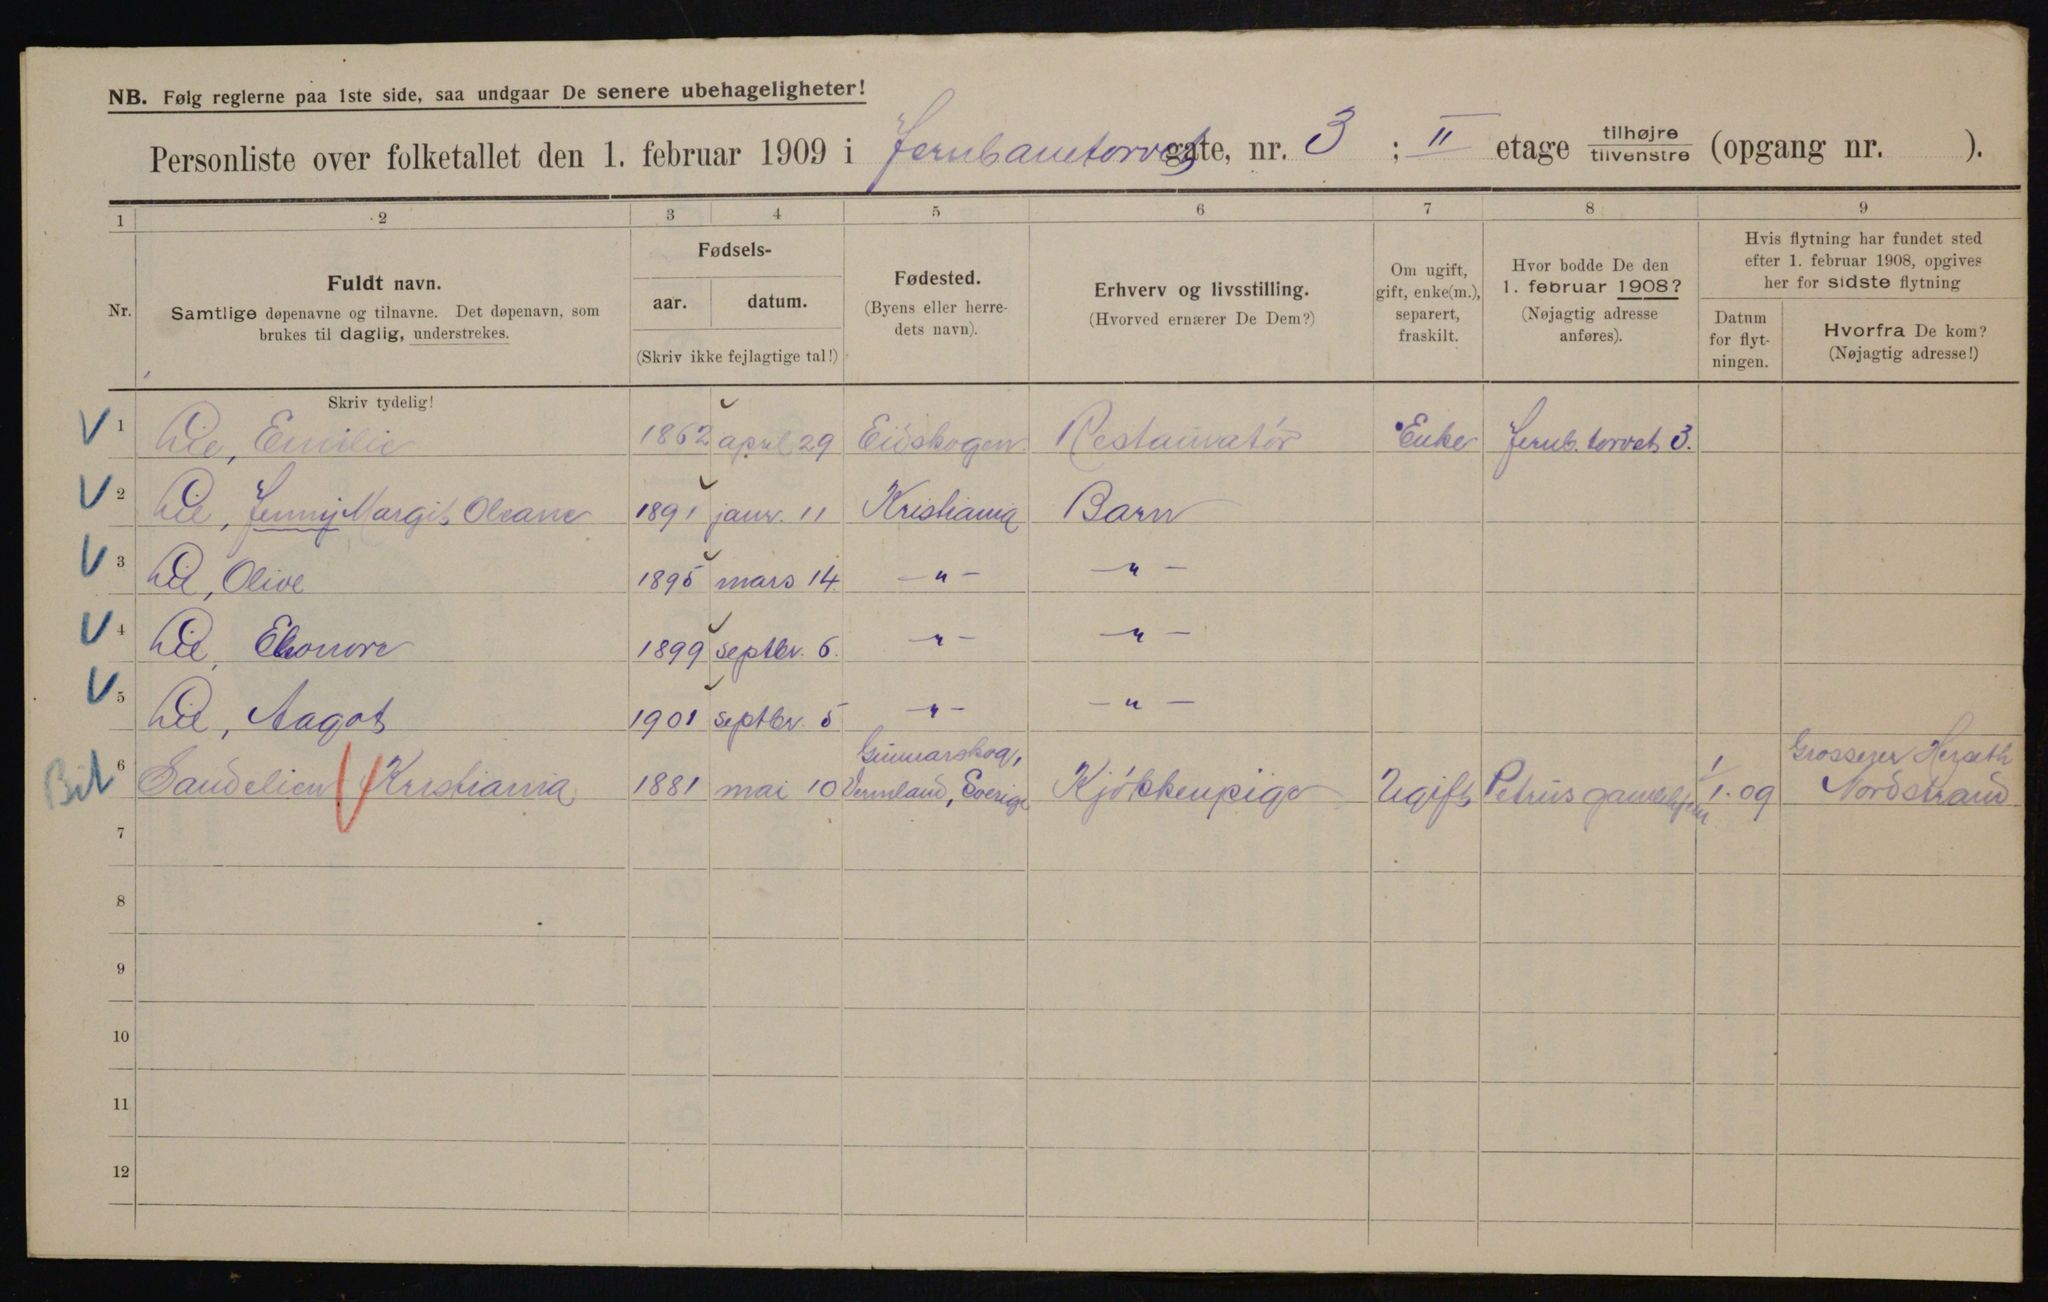 NB. Følg reglerne paa 1ste side, saa undgaar De senere ubehageligheter!
Personliste over folketallet den 1. februar 1909 i Jernbanetorvet gate, nr. 3 ; II etage tilhøjre tilvenstre (opgang nr. ).
1 2 3 4 5 6 7 8 9
Nr.
Fuldt navn.
Samtlige døpenavne og tilnavne. Det døpenavn, som
brukes til daglig, understrekes.
Skriv tydelig!
Fødsels-
aar. datum.
(Skriv ikke fejlagtige tal!)
Fødested.
(Byens eller herre-
dets navn).
Erhverv og livsstilling.
(Hvorved ernærer De Dem?)
Om ugift,
gift, enke(m.),
separert,
fraskilt.
Hvor bodde De den
1. februar 1908?
(Nøjagtig adresse
anføres).
Hvis flytning har fundet sted
efter 1. februar 1908, opgives
her for sidste flytning
Datum
for flyt-
ningen.
Hvorfra De kom?
(Nøjagtig adresse!)
1 Lie, Emilie 1862 april 29 Eidskogen Restauratør Enke Jernb. torvet 3.
2 Lie, Jenny Margit Oleane 1891 janr. 11 Kristiania Barn
3 Lie, Olive 1895 mars 14 — " — — " —
4 Lie, Elonore 1899 septbr. 6. — " — — " —
5 Lie, Aagot 1901 septbr. 5 — " — — " —
Bil 6 Sandelien Kristiania 1881 mai 10 Gunnarskog, Vermland, Sverige Kjøkkenpige Ugift Petrus gamlehjem 1/1. 09 Grosserer Herseth Nordstrand
7
8
9
10
11
12